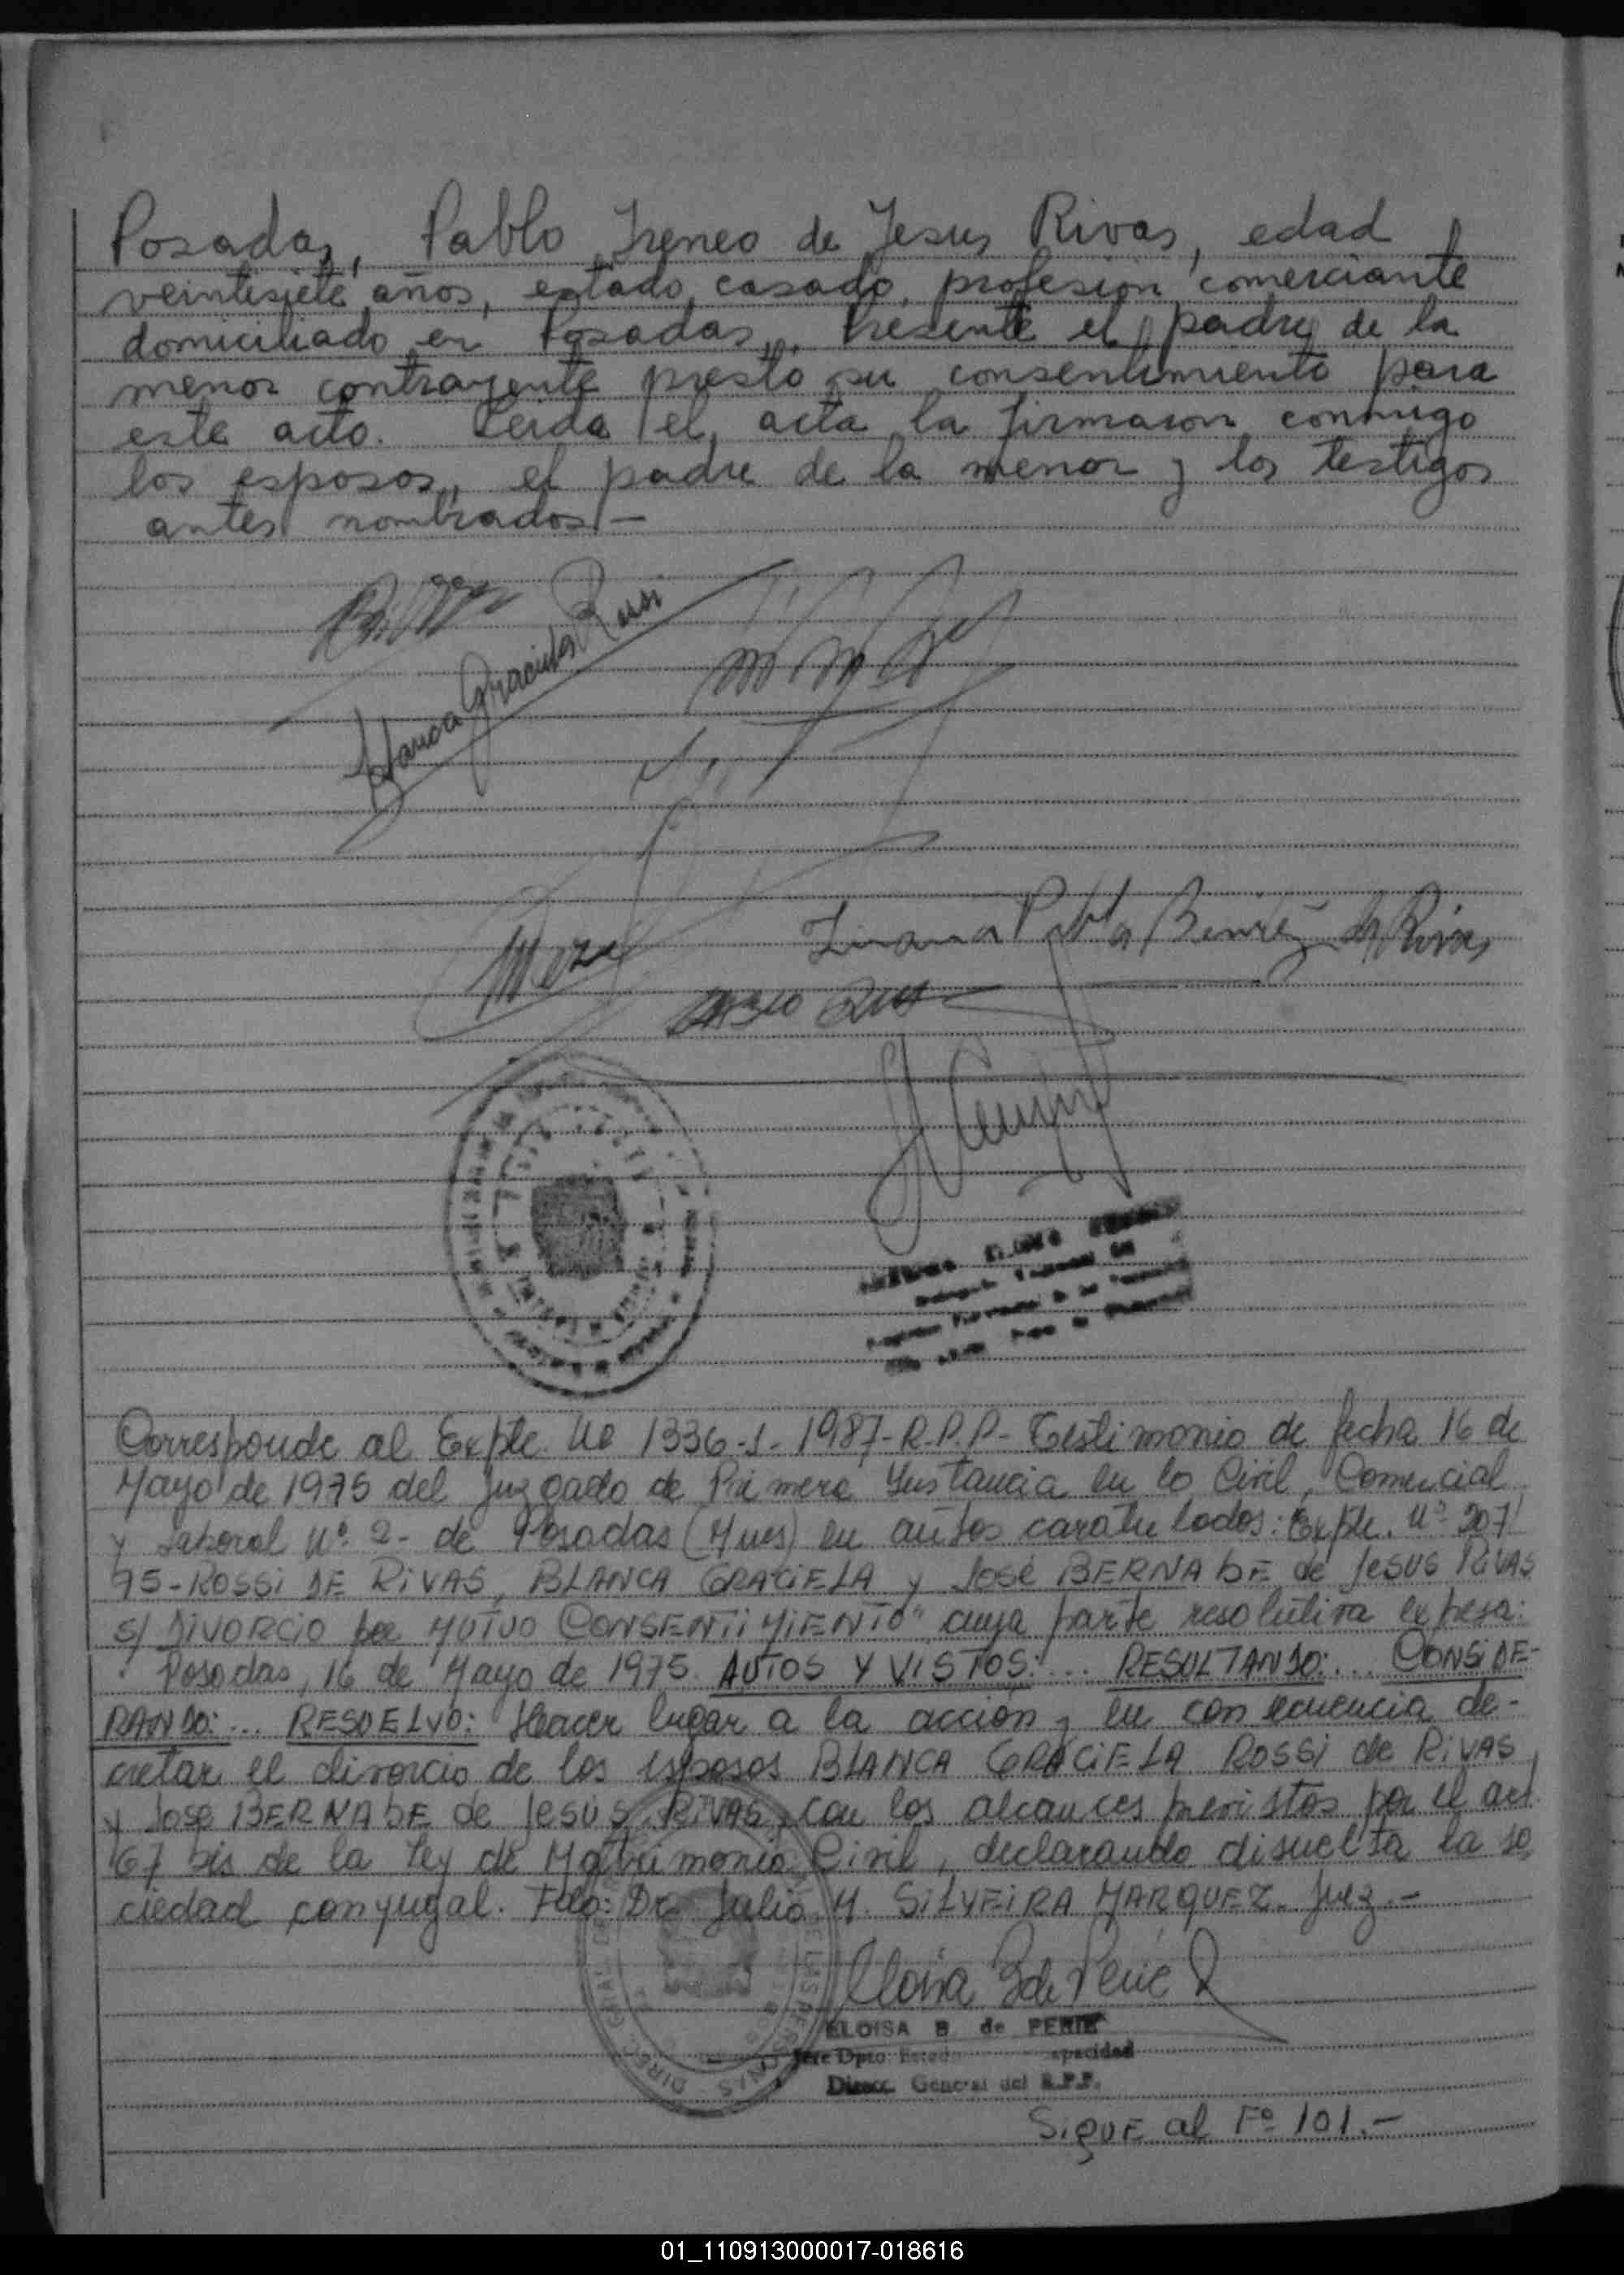 Posadas, Pablo Ireneo de Jesus Rivas, edad
veintisiete años, estado casado, profesion comerciante
domiciliado en Posadas,. Presente el padre de la
menor contrayente presto su consentimiento para
este acto. Leida el acta la firmaron conmigo
los esposos, el padre de la menor y los testigos
antes nombrados.-
Blanca Graciela Rossi
Juana Benitez de Rivas
Corresponde al Expte. Nº 1336-1-1987-R.P.P- Testimonio de fecha 16 de
Mayo de 1975 del Juzgado de Primera Instancia en lo Civil, Comercial
y Laboral Nº 2- de Posadas (Mnes) en autos caratulados: Expte. Nº 207/
75-ROSSI DE RIVAS, BLANCA GRACIELA y José BERNABE de Jesus RIVAS
S/ DIVORCIO por MUTUO CONSENTIMIENTO" cuya parte resolutiva expresa:
Posadas, 16 de Mayo de 1975. AUTOS Y VISTOS:... RESULTANDO:... CONSIDE-
RANDO:... RESUELVO: Hacer lugar a la acción y en consecuencia de-
cretar el divorcio de los esposos BLANCA GRACIELA ROSSI de RIVAS
y José BERNABE de Jesus RIVAS, con los alcances previstos por el art.
67 bis de la Ley de Matrimonio Civil, declarando disuelta la so
ciedad conyugal. Fdo: Dr. Julio M. SILVEIRA MARQUEZ. Juez.-
Eloisa B de Perie
ELOISA B. de PERIE
Jefe Dpto. Estado
Direcc. General del R.P.P.
SIGUE al Fº 101.-
01_110913000017-018616